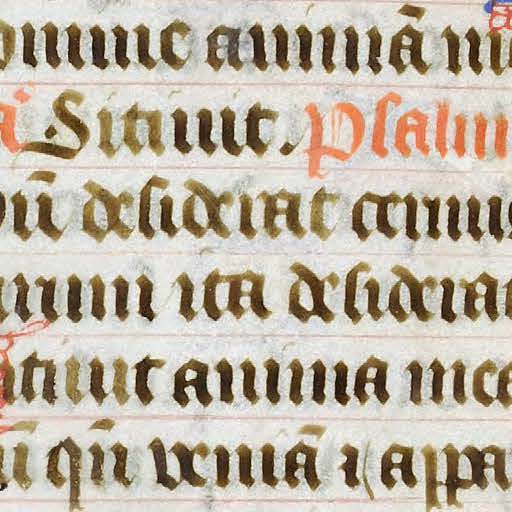 omine animā me
ā Sitiuit. Psalm
ū desiderat ceruus
arum ita desiderat
itiuit anima mea
ū qn̄ veniā ⁊ appa